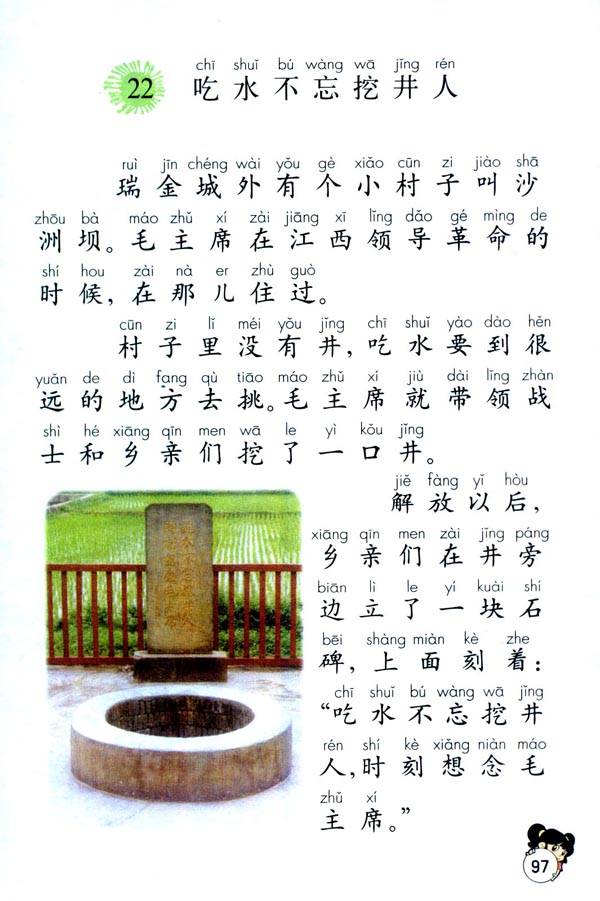 chī shuǐ bú wàng wā jǐng rén
22 吃水不忘挖井人
ruì jīn chéng wài yǒu gè xiǎo cūn zi jiào shā
瑞金城外有个小村子叫沙
zhōu bà máo zhǔ xí zài jiāng xī lǐng dǎo gé mìng de
洲坝。毛主席在江西领导革命的
shí hou zài nà er zhù guò
时候，在那儿住过。
cūn zi lǐ méi yǒu jǐng chī shuǐ yào dào hěn
村子里没有井，吃水要到很
yuǎn de dì fang qù tiāo máo zhǔ xí jiù dài lǐng zhàn
远的地方去挑。毛主席就带领战
shì hé xiāng qīn men wā le yì kǒu jǐng
士和乡亲们挖了一口井。
jiě fàng yǐ hòu
解放以后，
xiāng qīn men zài jǐng páng
乡亲们在井旁
biān lì le yí kuài shí
边立了一块石
bēi shàng miàn kè zhe
碑，上面刻着：
chī shuǐ bú wàng wā jǐng
“吃水不忘挖井
rén shí kè xiǎng niàn máo
人，时刻想念毛
zhǔ xí
主席。”
97